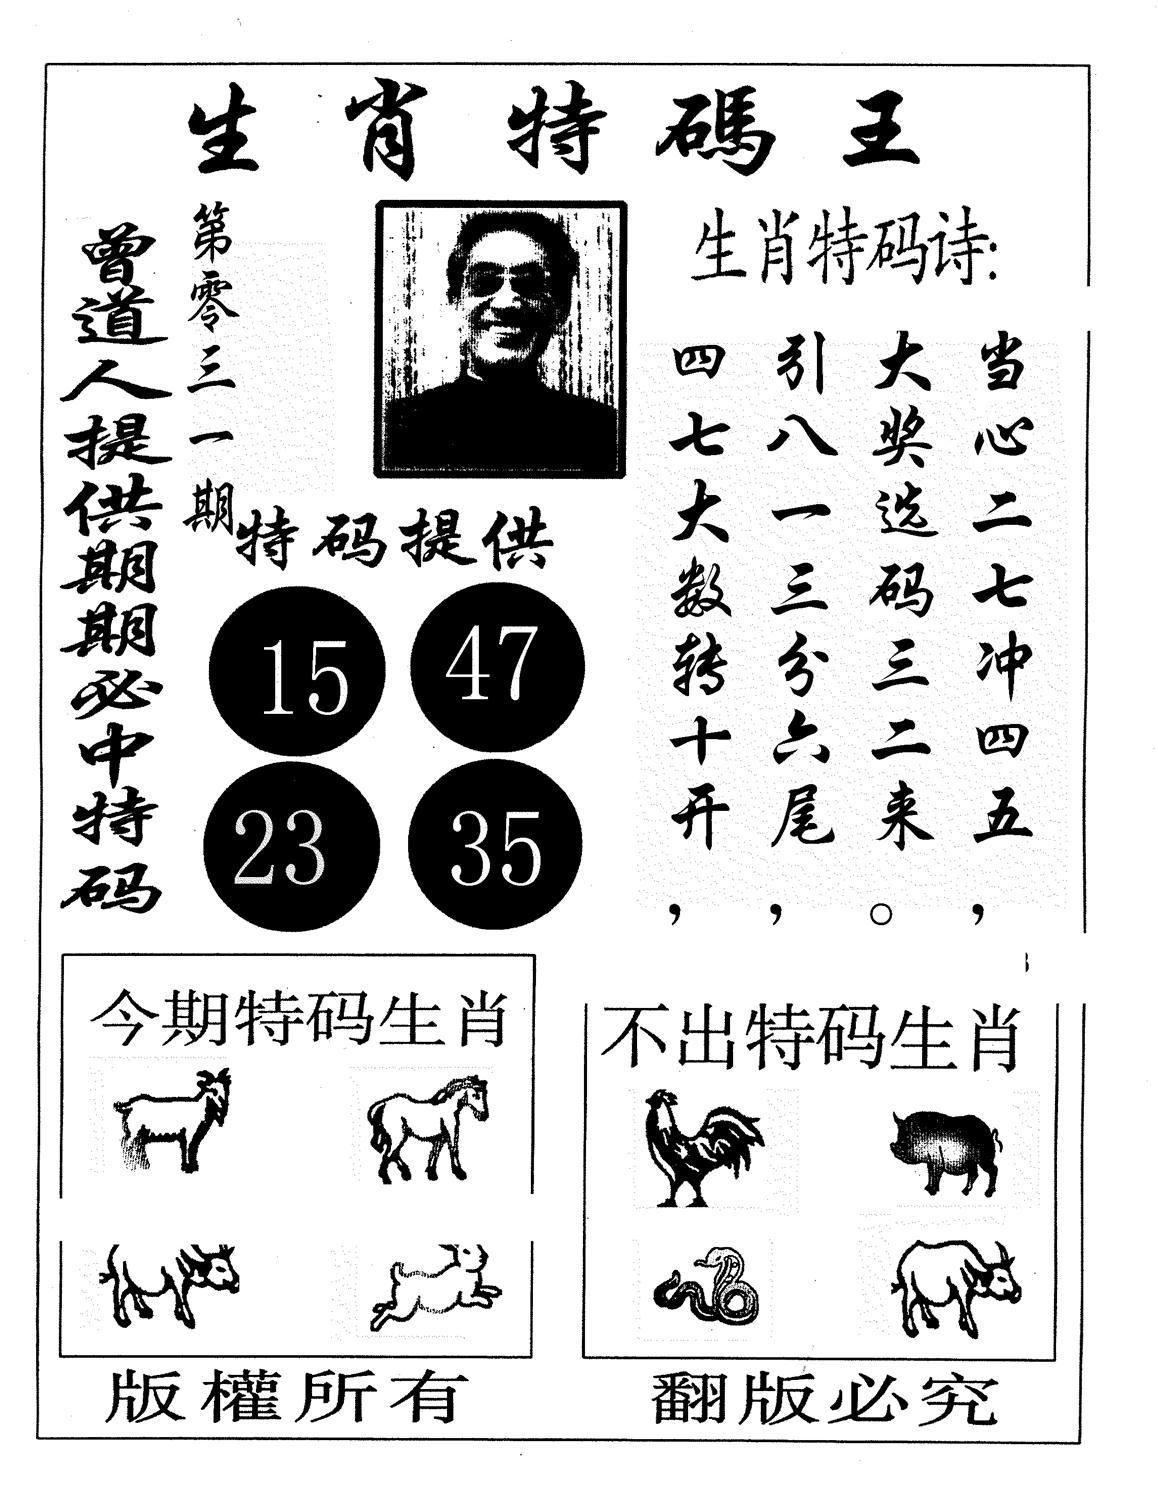 生肖特碼王
曾道人提供期期必中特码
第零三一期
生肖特码诗:
当心二七冲四五，
大奖选码三二来。
引八一三分六尾，
四七大数转十开，
特码提供
15 47
23 35
今期特码生肖
不出特码生肖
版權所有
翻版必究